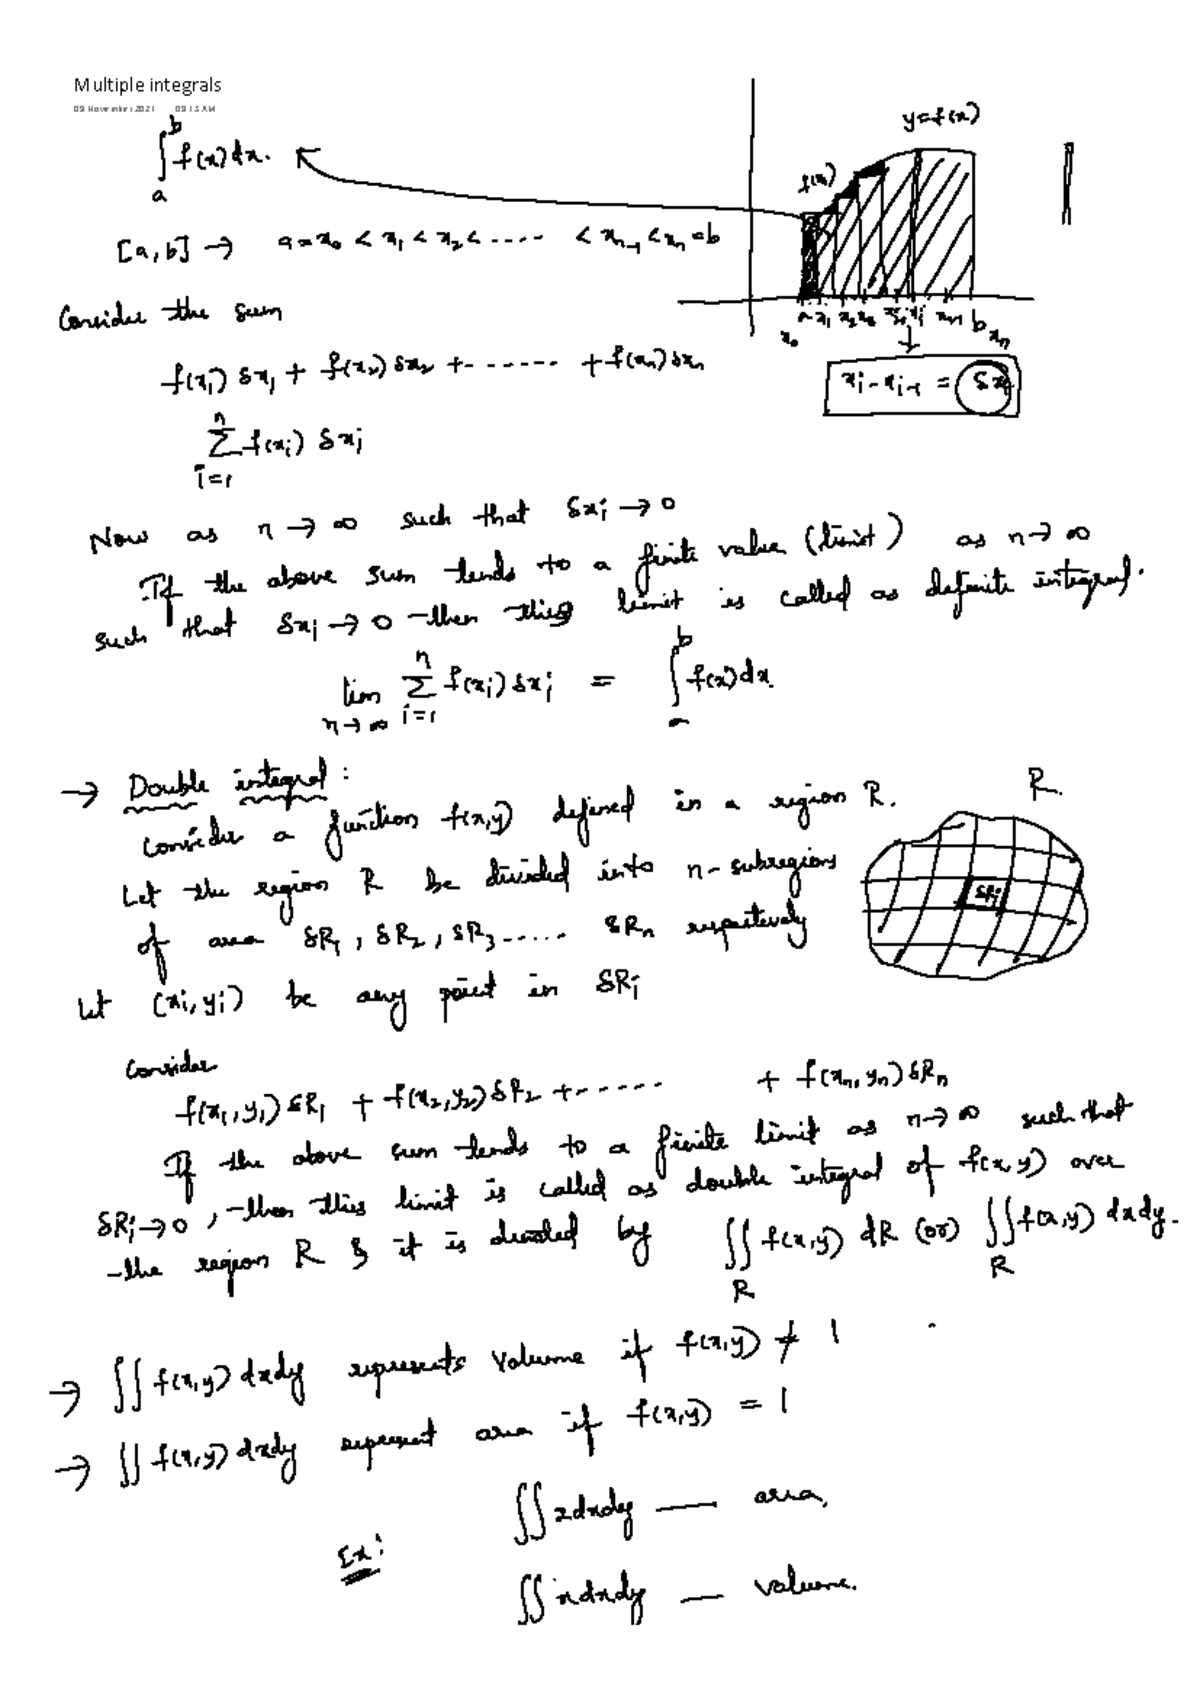 Multiple integrals
09 November 2021 09:13 AM
∫_a^b f(x)dx.
y=f(x)
f(x₁)
[a,b] → a=x₀ < x₁ < x₂ < ..... < xₙ₋₁ < xₙ =b
Consider the sum
f(x₁) δx₁ + f(x₂) δx₂ + ....... + f(xₙ) δxₙ
xᵢ - xᵢ₋₁ = δxᵢ
∑_{i=1}^n f(xᵢ) δxᵢ
Now as n → ∞ such that δxᵢ → 0
If the above sum tends to a finite value (limit) as n → ∞
such that δxᵢ → 0 then this limit is called as definite integral.
lim_{n→∞} ∑_{i=1}^n f(xᵢ) δxᵢ = ∫_a^b f(x)dx.
→ Double integral :
Consider a function f(x,y) defined in a region R.
R.
Let the region R be divided into n-subregions
δRᵢ
of area δR₁ , δR₂ , δR₃ ...... δRₙ respectively
Let (xᵢ, yᵢ) be any point in δRᵢ
Consider
f(x₁, y₁) δR₁ + f(x₂, y₂) δR₂ + ...... + f(xₙ, yₙ) δRₙ
If the above sum tends to a finite limit as n → ∞ such that
δRᵢ → 0 , then this limit is called as double integral of f(x,y) over
the region R & it is denoted by ∬_R f(x,y) dR (or) ∬_R f(x,y) dxdy.
→ ∬ f(x,y) dxdy represents volume if f(x,y) ≠ 1
→ ∬ f(x,y) dxdy represent area if f(x,y) = 1
∬ 2dxdy — area,
Ex:
∬ xdxdy — volume.